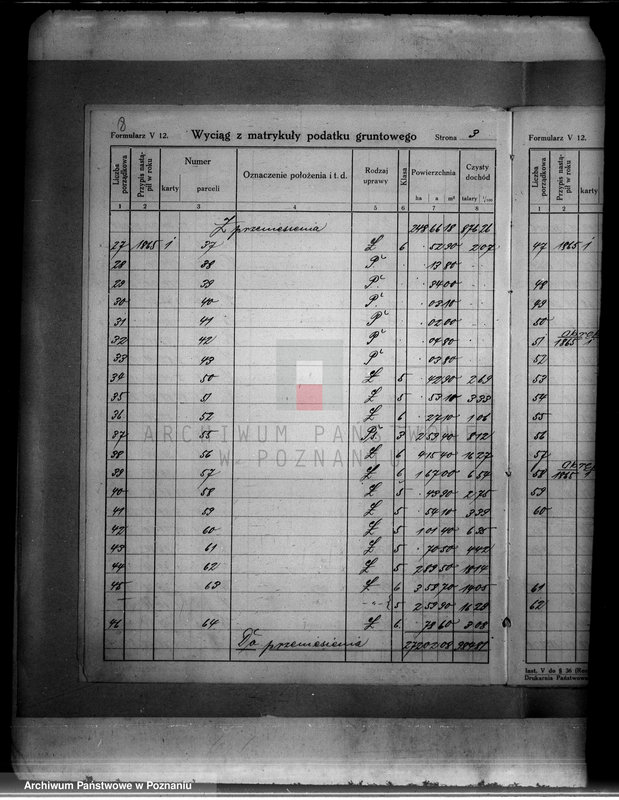 8
Formularz V 12. Wyciąg z matrykuły podatku gruntowego Strona 3
Liczba porządkowa Przypis nastąpił w roku Numer karty parceli Oznaczenie położenia i t. d. Rodzaj uprawy Klasa Powierzchnia ha a m² Czysty dochód talary 1/100
1 2 3 4 5 6 7 8
Z przeniesienia 248 66 18 876 26
27 1865 1 37 Ł 6 . 52 90 2 07
28 38 . 13 80
29 39 . 34 00
30 40 . 03 10
31 41 . 02 00
32 42 . 04 80
33 43 . 03 80
34 50 Ł 5 . 42 90 2 69
35 51 Ł 5 . 53 10 3 33
36 52 Ł 6 . 27 10 1 06
37 55 3 2 59 40 8 12
38 56 Ł 6 4 15 40 16 27
39 57 Ł 6 1 67 00 6 54
40 58 Ł 5 . 43 90 2 75
41 59 Ł 5 . 54 10 3 39
42 60 Ł 5 1 01 40 6 35
43 61 Ł 5 . 70 50 4 42
44 62 Ł 5 2 89 50 18 14
45 63 Ł 6 3 58 70 14 05
-"- 5 2 59 90 16 29
46 64 Ł 6 . 78 60 3 08
Do przeniesienia 272 02 08 984 81
Formularz V 12.
Liczba porządkowa Przypis nastąpił w roku karty
1 2
47 1865 1
48
49
50
51 1865 1
52
53
54
55
56
57
58 1865 1
59
60
61
62
Inst. V do § 36
Drukarnia Państwowa
ARCHIWUM PAŃSTWOWE
W POZNANIU
Archiwum Państwowe w Poznaniu